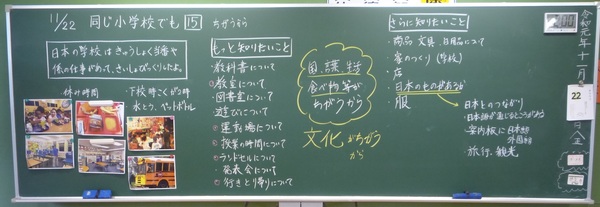 11/22 同じ小学校でも 15 ちがうそう
日本の学校はきゅうしょく当番や
係の仕事があって、さいしょびっくりしたよ。
・休み時間
・下校時こくが3時
・水とう、ペットボトル
もっと知りたいこと
・教科書について
・教室について
・図書室について
・遊びについて
・運動場について
・授業の時間について
・ランドセルについて
・発表会について
・行きと帰りについて
国、言葉、生活
食べ物等が
ちがうから
文化がちがうから
さらに知りたいこと
・商品、文具、日用品について
・家のつくり(学校)
・店
・日本のものがあるか
・服
日本とのつながり
・日本語が通じるところがあるか
・案内板に日本語
外国語
・旅行、観光
令和元年十一月
22
金